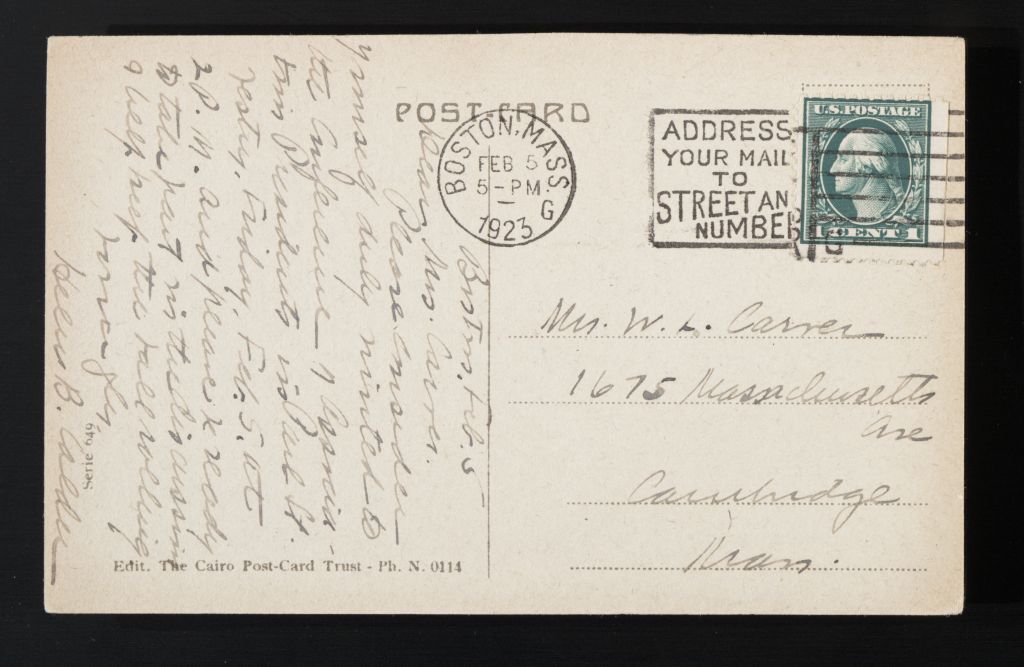 POST CARD
BOSTON, MASS.
FEB 5
5-PM.
1923
G
ADDRESS
YOUR MAIL
TO
STREET AN
NUMBE
U.S. POSTAGE
1 CENT 1
Boston, Feb. 5
Dear Mrs. Carver.
Please consider
yourself duly invited to
the Conference of Associa-
tion Presidents in Park St.
Vestry, Friday, Feb. 5. at
2 P. M. and please be ready
to take part in the discussion
& help keep the ball rolling
Sincerely,
Helen B. Calder
Mrs. W. L. Carver
1675 Massachusetts
Ave
Cambridge
Mass.
Serie 649
Edit. The Cairo Post-Card Trust - Ph. N. 0114